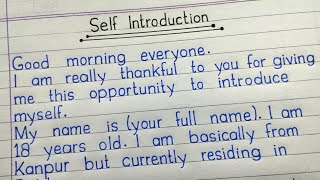 Self Introduction
Good morning everyone.
I am really thankful to you for giving
me this opportunity to introduce
myself.
My name is (your full name). I am
18 years old. I am basically from
Kanpur but currently residing in